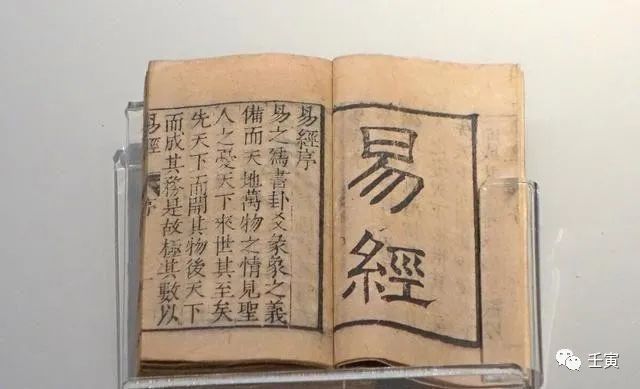 易經
易經序
易之爲書卦爻彖象之義
備而天地萬物之情見聖
人之憂天下來世其至矣
先天下而開其物後天下
而成其務是故極其數以
易經 序
壬寅